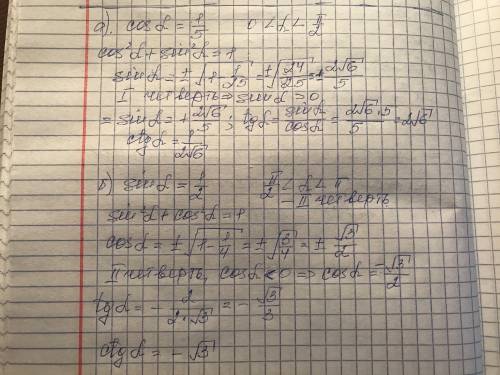 а). cosα = 1/5    0 < α < π/2
cos²α + sin²α = 1
sinα = ±√(1 - 1/25) = ±√(24/25) = ± 2√6/5
I четверть ⇒ sinα > 0
⇒ sinα = + 2√6/5 ; tgα = sinα/cosα = 2√6·5/5 = 2√6
ctgα = 1/2√6
б) sinα = 1/2    π/2 < α < π
- II четверть
sin²α + cos²α = 1
cosα = ±√(1 - 1/4) = ±√(3/4) = ± √3/2
II четверть, cosα < 0 ⇒ cosα = -√3/2
tgα = - 2/2·√3 = - √3/3
ctgα = - √3